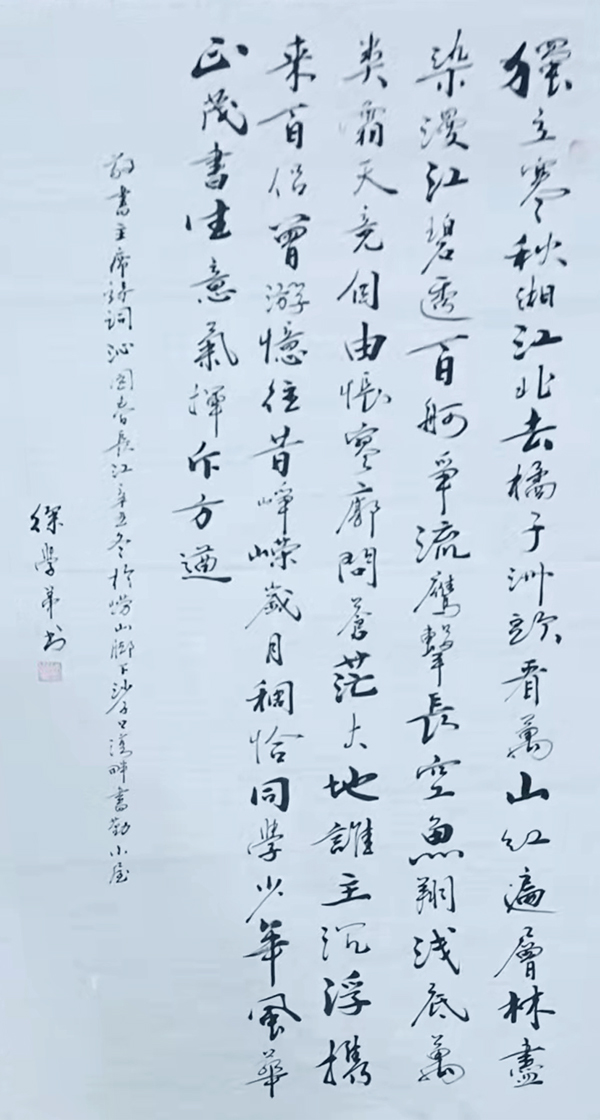 獨立寒秋湘江北去橘子洲頭看萬山红遍層林盡
染漫江碧透百舸爭流鷹擊長空魚翔浅底萬
类霜天竞自由悵寥廓問蒼茫大地誰主沉浮攜
来百侣曾游憶往昔崢嶸歲月稠恰同學少年風華
正茂書生意氣揮斥方遒
敬書主席詩詞沁園春長江辛丑冬於嶗山脚下沙子口湾畔書勤小屋
徐學第书